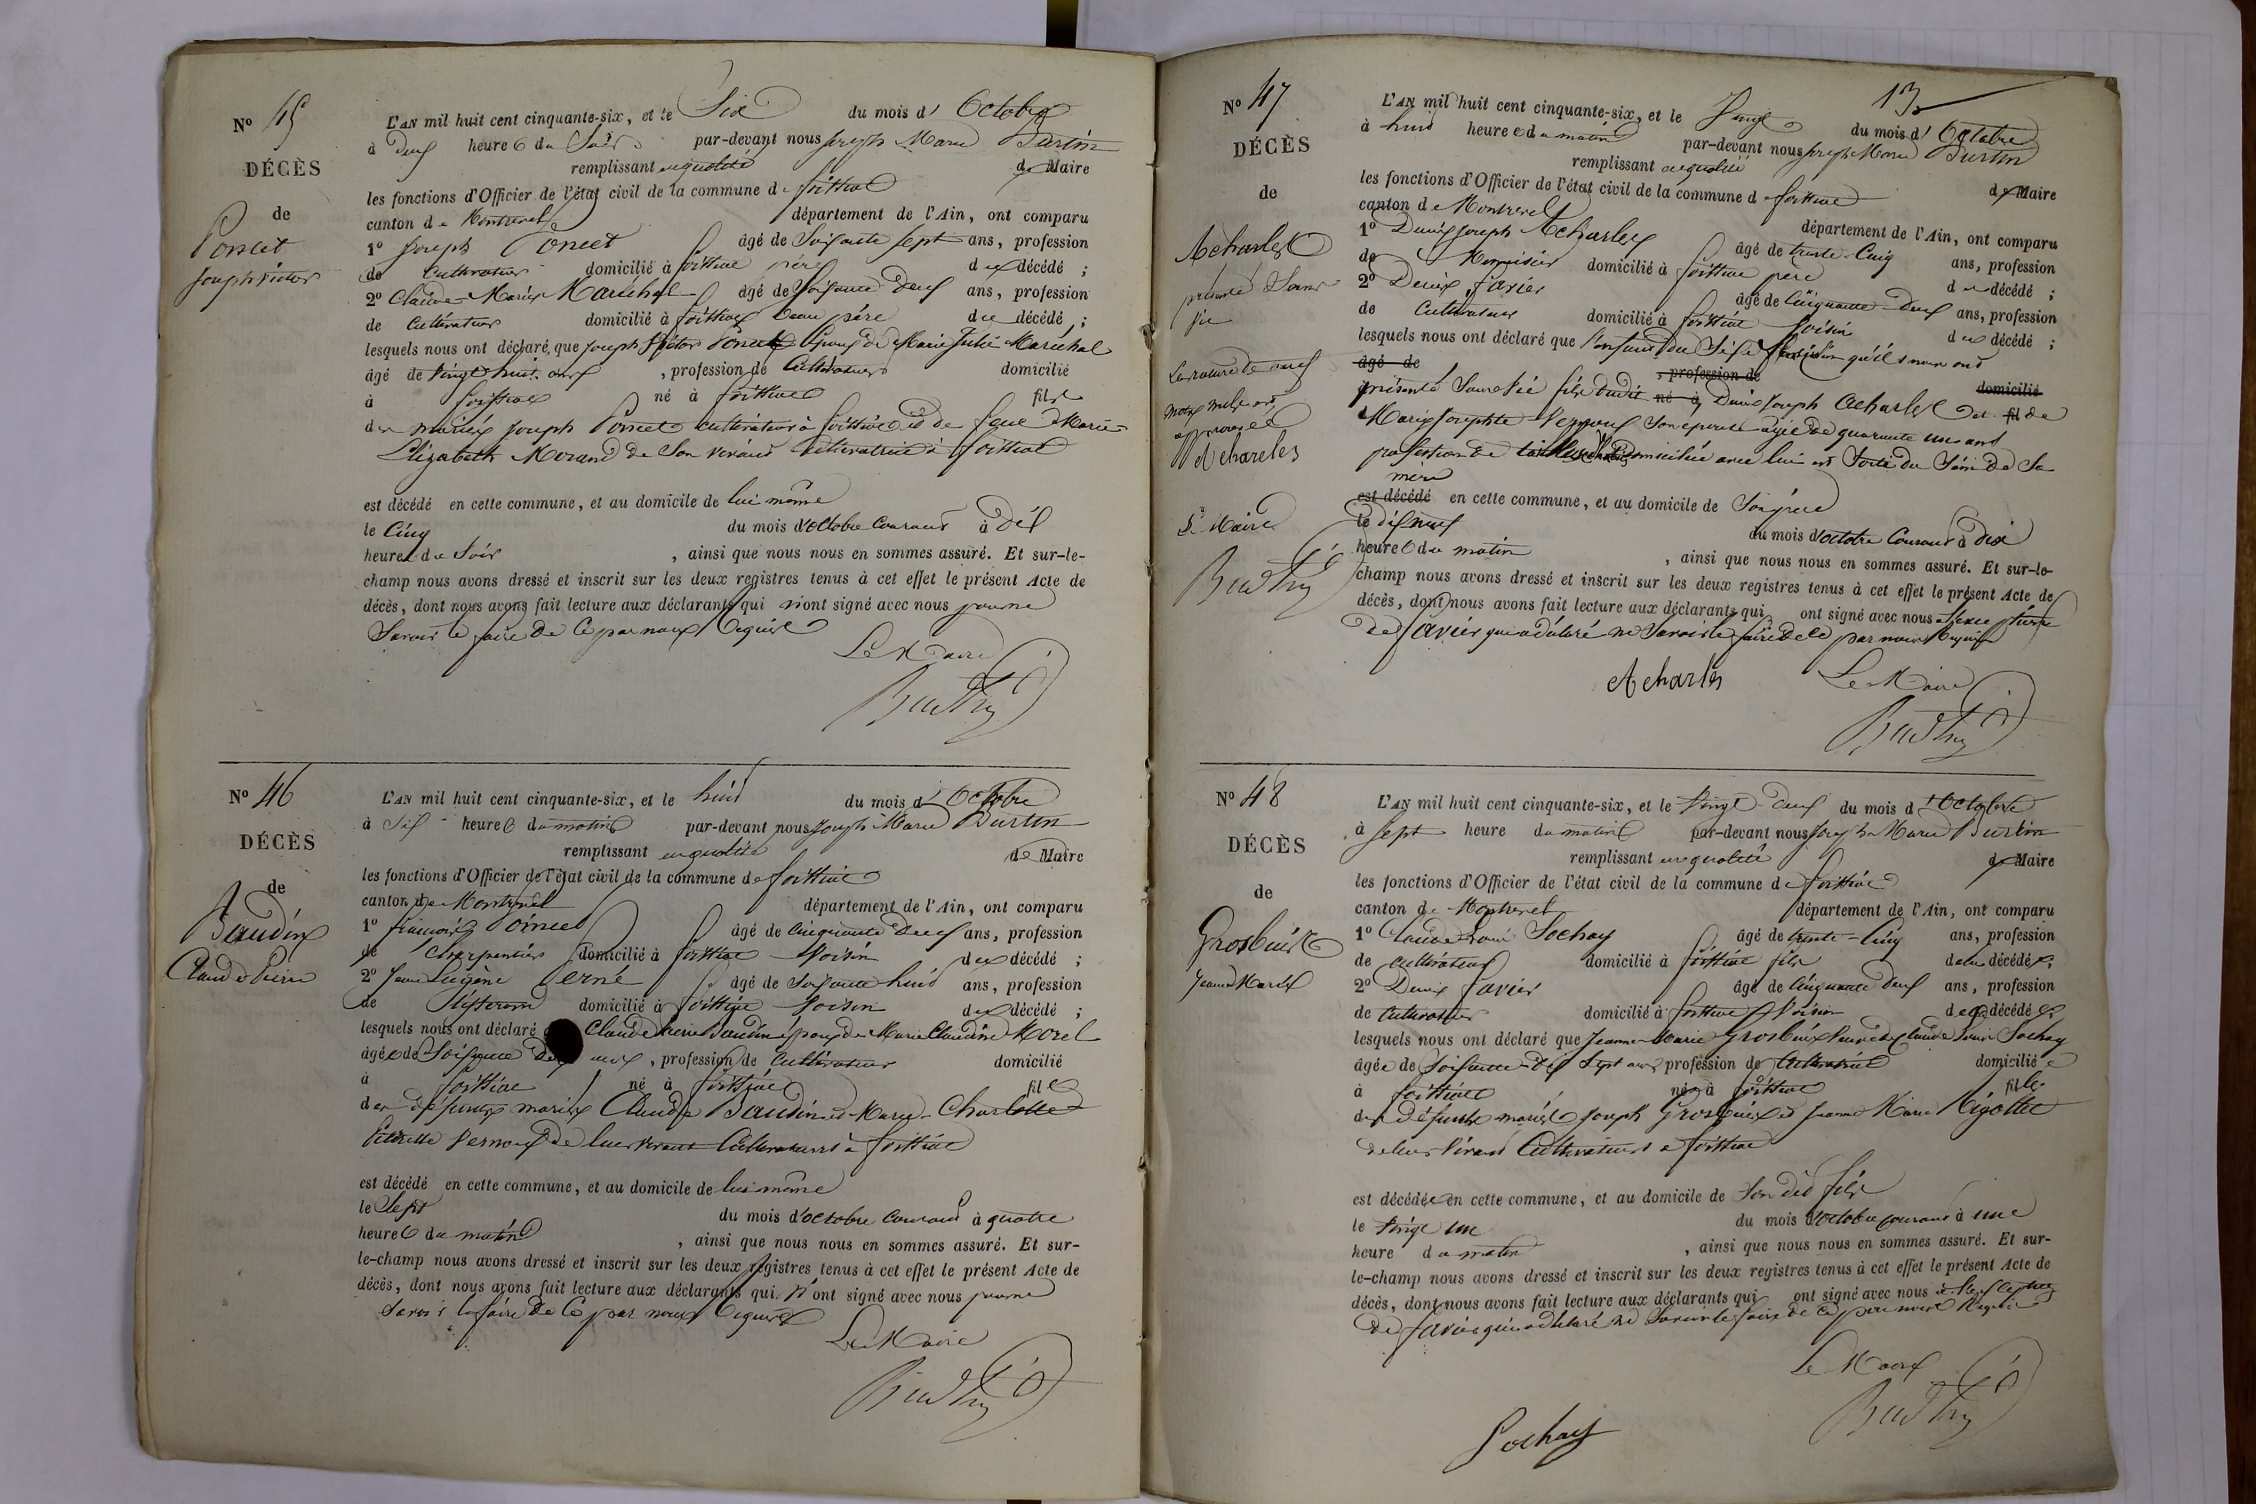 N° 45
DÉCÈS
de
Poncet
Joseph Victor
L'AN mil huit cent cinquante-six, et le Six du mois d' Octobre
à Deux heures du Soir par-devant nous Joseph Marie Burtin
remplissant en qualité de Maire
les fonctions d'Officier de l'état civil de la commune de foissiat
canton de Montrevel département de l'Ain, ont comparu
1° Joseph Poncet âgé de Soixante Sept ans, profession
de Cultivateur domicilié à foissiat père du décédé ;
2° Claude-Marie Maréchal âgé de Soixante Deux ans, profession
de Cultivateur domicilié à foissiat beau père du décédé ;
lesquels nous ont déclaré que Joseph Victor Poncet Epoux de Marie Maréchal
âgé de Vingt huit ans , profession de Cultivateur domicilié
à foissiat né à foissiat fils
des mariés Joseph Poncet cultivateur à foissiat et de feue Marie-
Elizabeth Morand de Son vivant cultivatrice à foissiat
est décédé en cette commune, et au domicile de lui même
le Cinq du mois d'octobre Courant à Dix
heures du Soir , ainsi que nous nous en sommes assuré. Et sur-le-
champ nous avons dressé et inscrit sur les deux registres tenus à cet effet le présent Acte de
décès, dont nous avons fait lecture aux déclarants qui n'ont signé avec nous pour ne
Savoir le faire de ce par nous Requis
Le Maire
Burtin
N° 46
DÉCÈS
de
Baudin
Claude Pierre
L'AN mil huit cent cinquante-six, et le huit du mois d' Octobre
à Six heures du matin par-devant nous Joseph Marie Burtin
remplissant en qualité de Maire
les fonctions d'Officier de l'état civil de la commune de foissiat
canton de Montrevel département de l'Ain, ont comparu
1° François Poncet âgé de Cinquante Deux ans, profession
de Charpentier domicilié à foissiat Voisin du décédé ;
2° Jean Eugène Perné âgé de Soixante huit ans, profession
de domicilié à foissiat Voisin du décédé ;
lesquels nous ont déclaré Claude Pierre Baudin époux de Marie Claudine Morel
âgé de Soixante ans , profession de Cultivateur domicilié
à foissiat né à foissiat fils
des défunts mariés Claude Baudin et Marie-Charlotte
Pernoux de leur vivant Cultivateurs à foissiat
est décédé en cette commune, et au domicile de lui même
le Sept du mois d'octobre Courant à quatre
heures du matin , ainsi que nous nous en sommes assuré. Et sur-
le-champ nous avons dressé et inscrit sur les deux registres tenus à cet effet le présent Acte de
décès, dont nous avons fait lecture aux déclarants qui n'ont signé avec nous pour ne
Savoir le faire de ce par nous Requis
Le Maire
Burtin
13
N° 47
DÉCÈS
de
Acharles
présenté Sans
Vie
La rature de neuf
mots nuls est
approuvée
Acharles
Le Maire
Burtin
L'AN mil huit cent cinquante-six, et le Vingt du mois d' Octobre
à huit heures du matin par-devant nous Joseph Marie Burtin
remplissant en qualité de Maire
les fonctions d'Officier de l'état civil de la commune de foissiat
canton de Montrevel département de l'Ain, ont comparu
1° Denis Joseph Acharles âgé de trente-Cinq ans, profession
de Menuisier domicilié à foissiat père du décédé ;
2° Denis favier âgé de Cinquante Deux ans, profession
de Cultivateur domicilié à foissiat Voisin du décédé ;
lesquels nous ont déclaré que l'enfant du Sexe qu'ils nous ont
âgé de , profession de domicilié
présenté Sans Vie fils dudit né à Denis Joseph Acharles et fil de
Marie Josephte Vernoux Son épouse agée de quarante un ans
profession de domiciliée avec lui est Sorti du Sein de Sa
mère
est décédé en cette commune, et au domicile de Son père
le dix neuf du mois d'octobre Courant à dix
heures du matin , ainsi que nous nous en sommes assuré. Et sur-le-
champ nous avons dressé et inscrit sur les deux registres tenus à cet effet le présent Acte de
décès, dont nous avons fait lecture aux déclarants qui ont signé avec nous
de favier qui a déclaré ne Savoir le faire de ce par nous Requis
Acharles
Le Maire
Burtin
N° 48
DÉCÈS
de
Grosbuis
Jeanne Marie
L'AN mil huit cent cinquante-six, et le Vingt-Deux du mois d' Octobre
à Sept heure du matin par-devant nous Joseph Marie Burtin
remplissant en qualité de Maire
les fonctions d'Officier de l'état civil de la commune de foissiat
canton de Montrevel département de l'Ain, ont comparu
1° Claude Louis Sochay âgé de trente-Cinq ans, profession
de Cultivateur domicilié à foissiat fils de la décédée ;
2° Denis favier âgé de Cinquante Deux ans, profession
de Cultivateur domicilié à foissiat Voisin de la décédée ;
lesquels nous ont déclaré que Jeanne-Marie Grosbuis Veuve de Claude Louis Sochay
âgée de Soixante-Dix Sept ans profession de Cultivatrice domiciliée
à foissiat née à foissiat fille
des défunts mariés Joseph Grosbuis et Jeanne Marie Rigottet
de leur vivant Cultivateurs à foissiat
est décédée en cette commune, et au domicile de Son dit fils
le Vingt un du mois d'octobre Courant à une
heure du matin , ainsi que nous nous en sommes assuré. Et sur-
le-champ nous avons dressé et inscrit sur les deux registres tenus à cet effet le présent Acte de
décès, dont nous avons fait lecture aux déclarants qui ont signé avec nous
de favier qui a déclaré ne Savoir le faire de ce par nous Requis
Le Maire
Burtin
Sochay